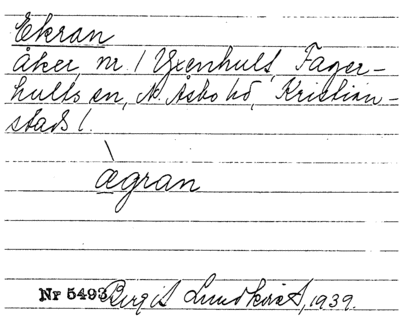 Ekran
åker, nr 1 Yxenhult, Fager-
hults sn, N. Åsbo hd, Kristian-
stads l.
ægran
Nr 5493 Birgit Lundkvist, 1939.